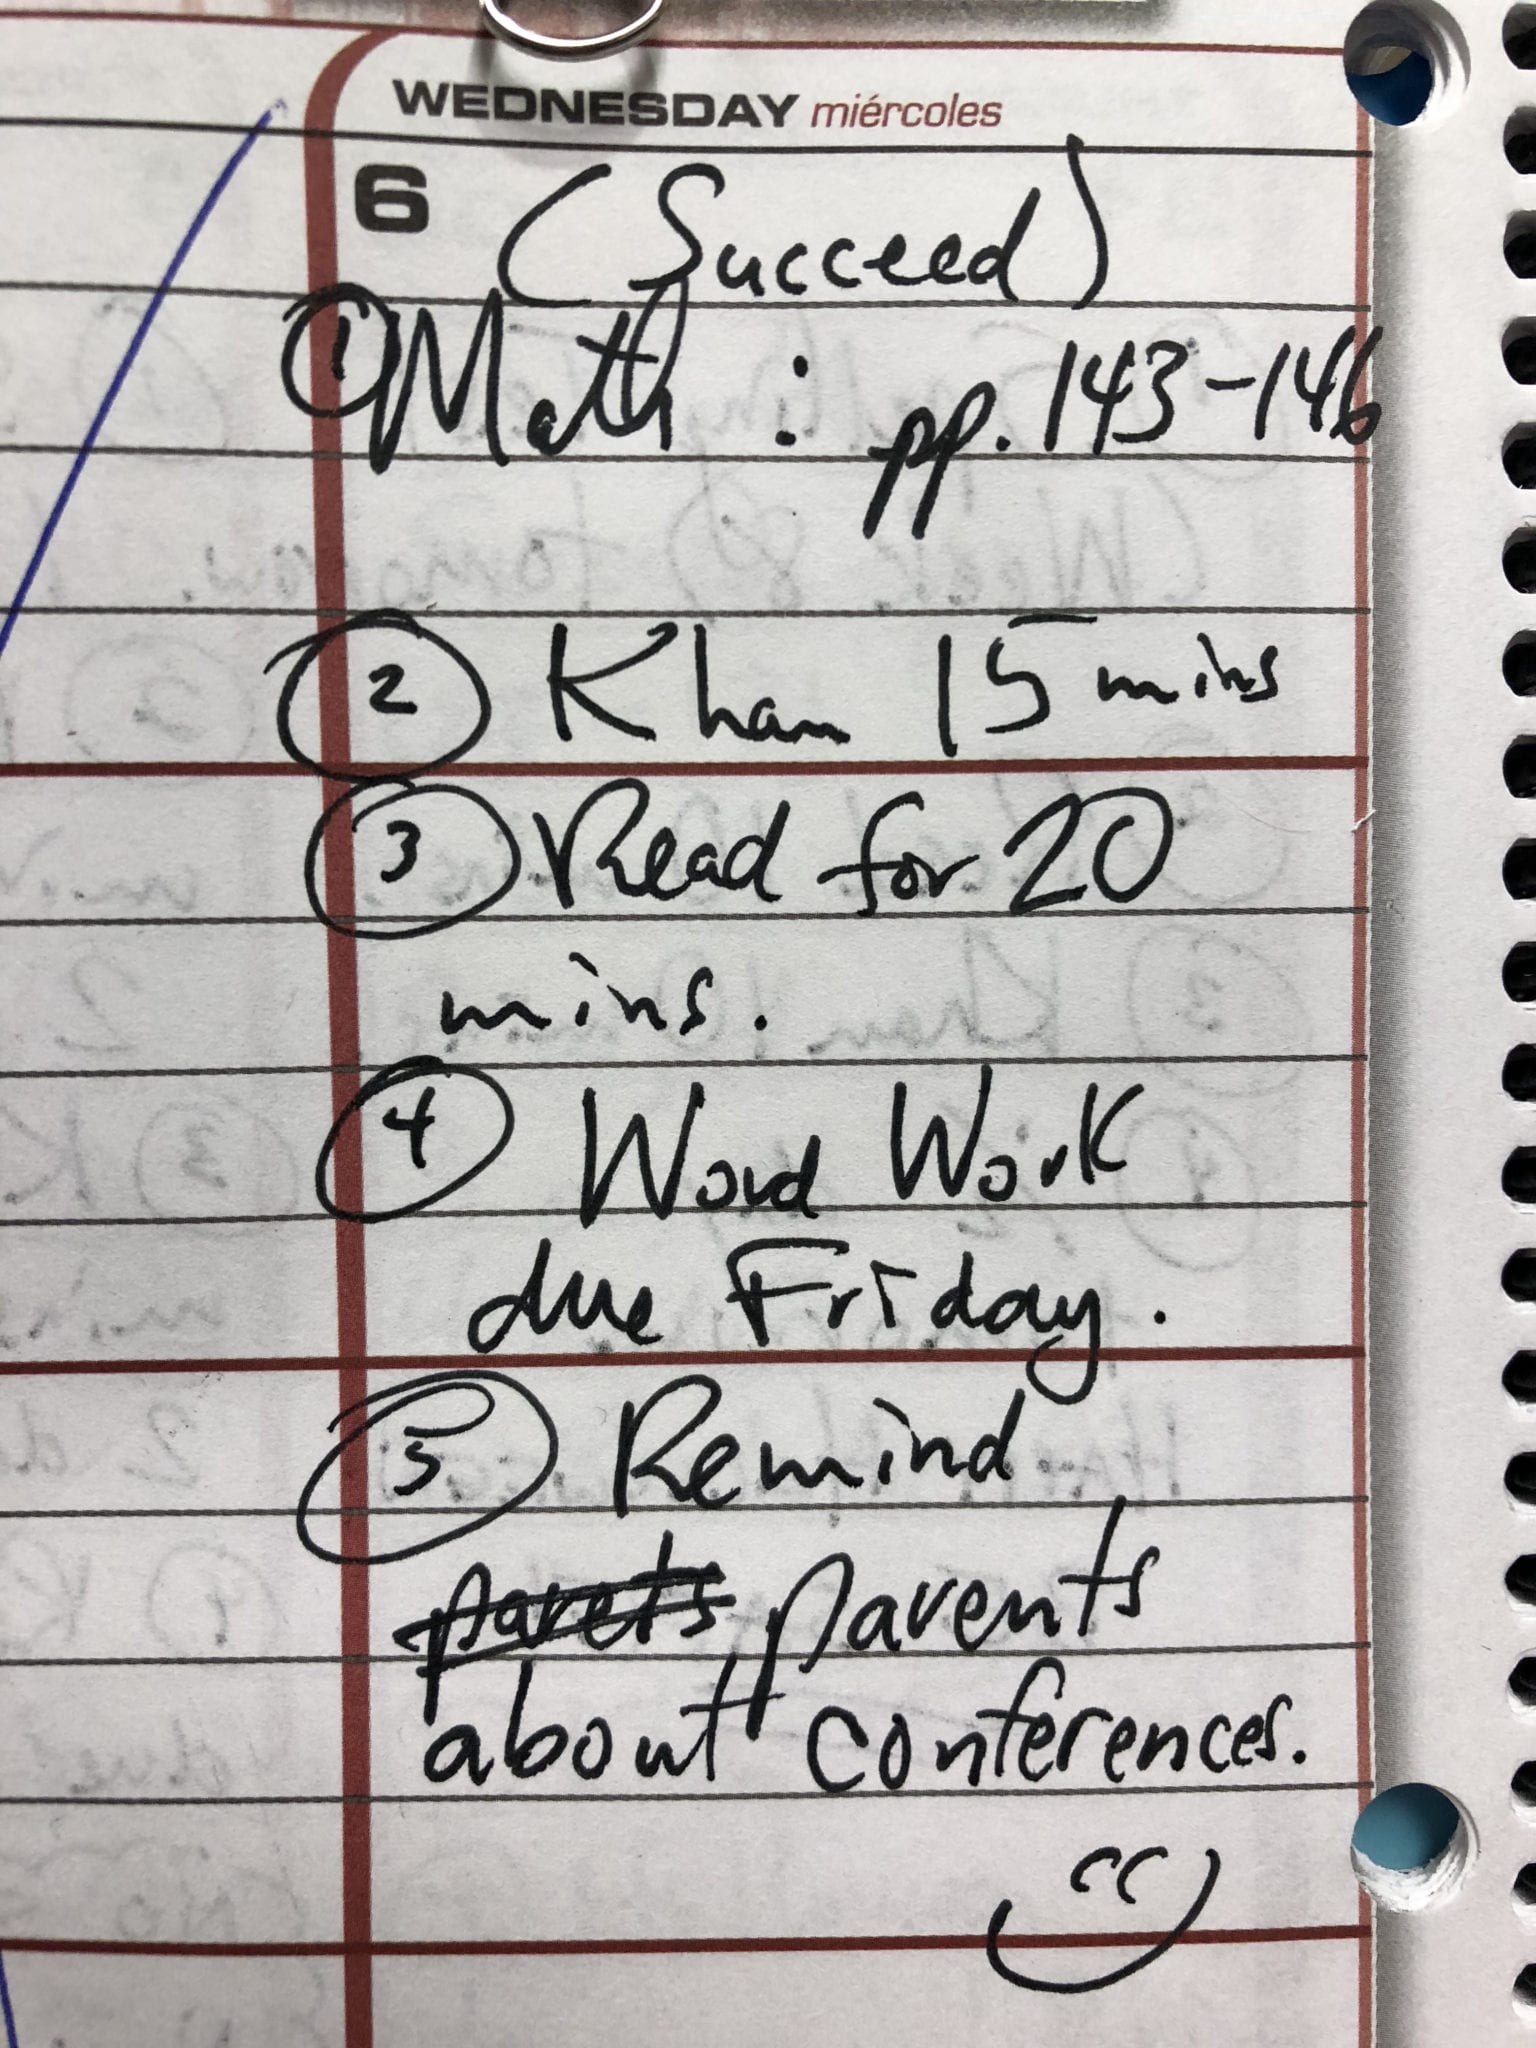 WEDNESDAY miércoles
6 (Succeed)
1 Math : pp. 143-146
2 Khan 15 mins
3 Read for 20
mins.
4 Word Work
due Friday.
5 Remind
parets parents
about conferences.